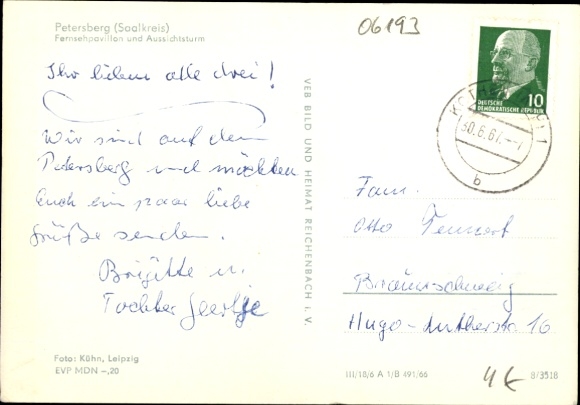 Petersberg (Saalkreis)
Fernsehpavillon und Aussichtsturm
Ihr lieben alle drei!
Wir sind auf dem
Petersberg und möchten
Euch ein paar liebe
Grüße senden.
Brigitte u.
Tochter
Foto: Kühn, Leipzig
EVP MDN –,20
VEB BILD UND HEIMAT REICHENBACH I. V.
06193
DEUTSCHE
DEMOKRATISCHE REPUBLIK
10
30.6.67.-
b
Fam.
Otto
Braunschweig
Hugo-Lutherstr. 10
III/18/6 A 1/B 491/66
8/3518
4€